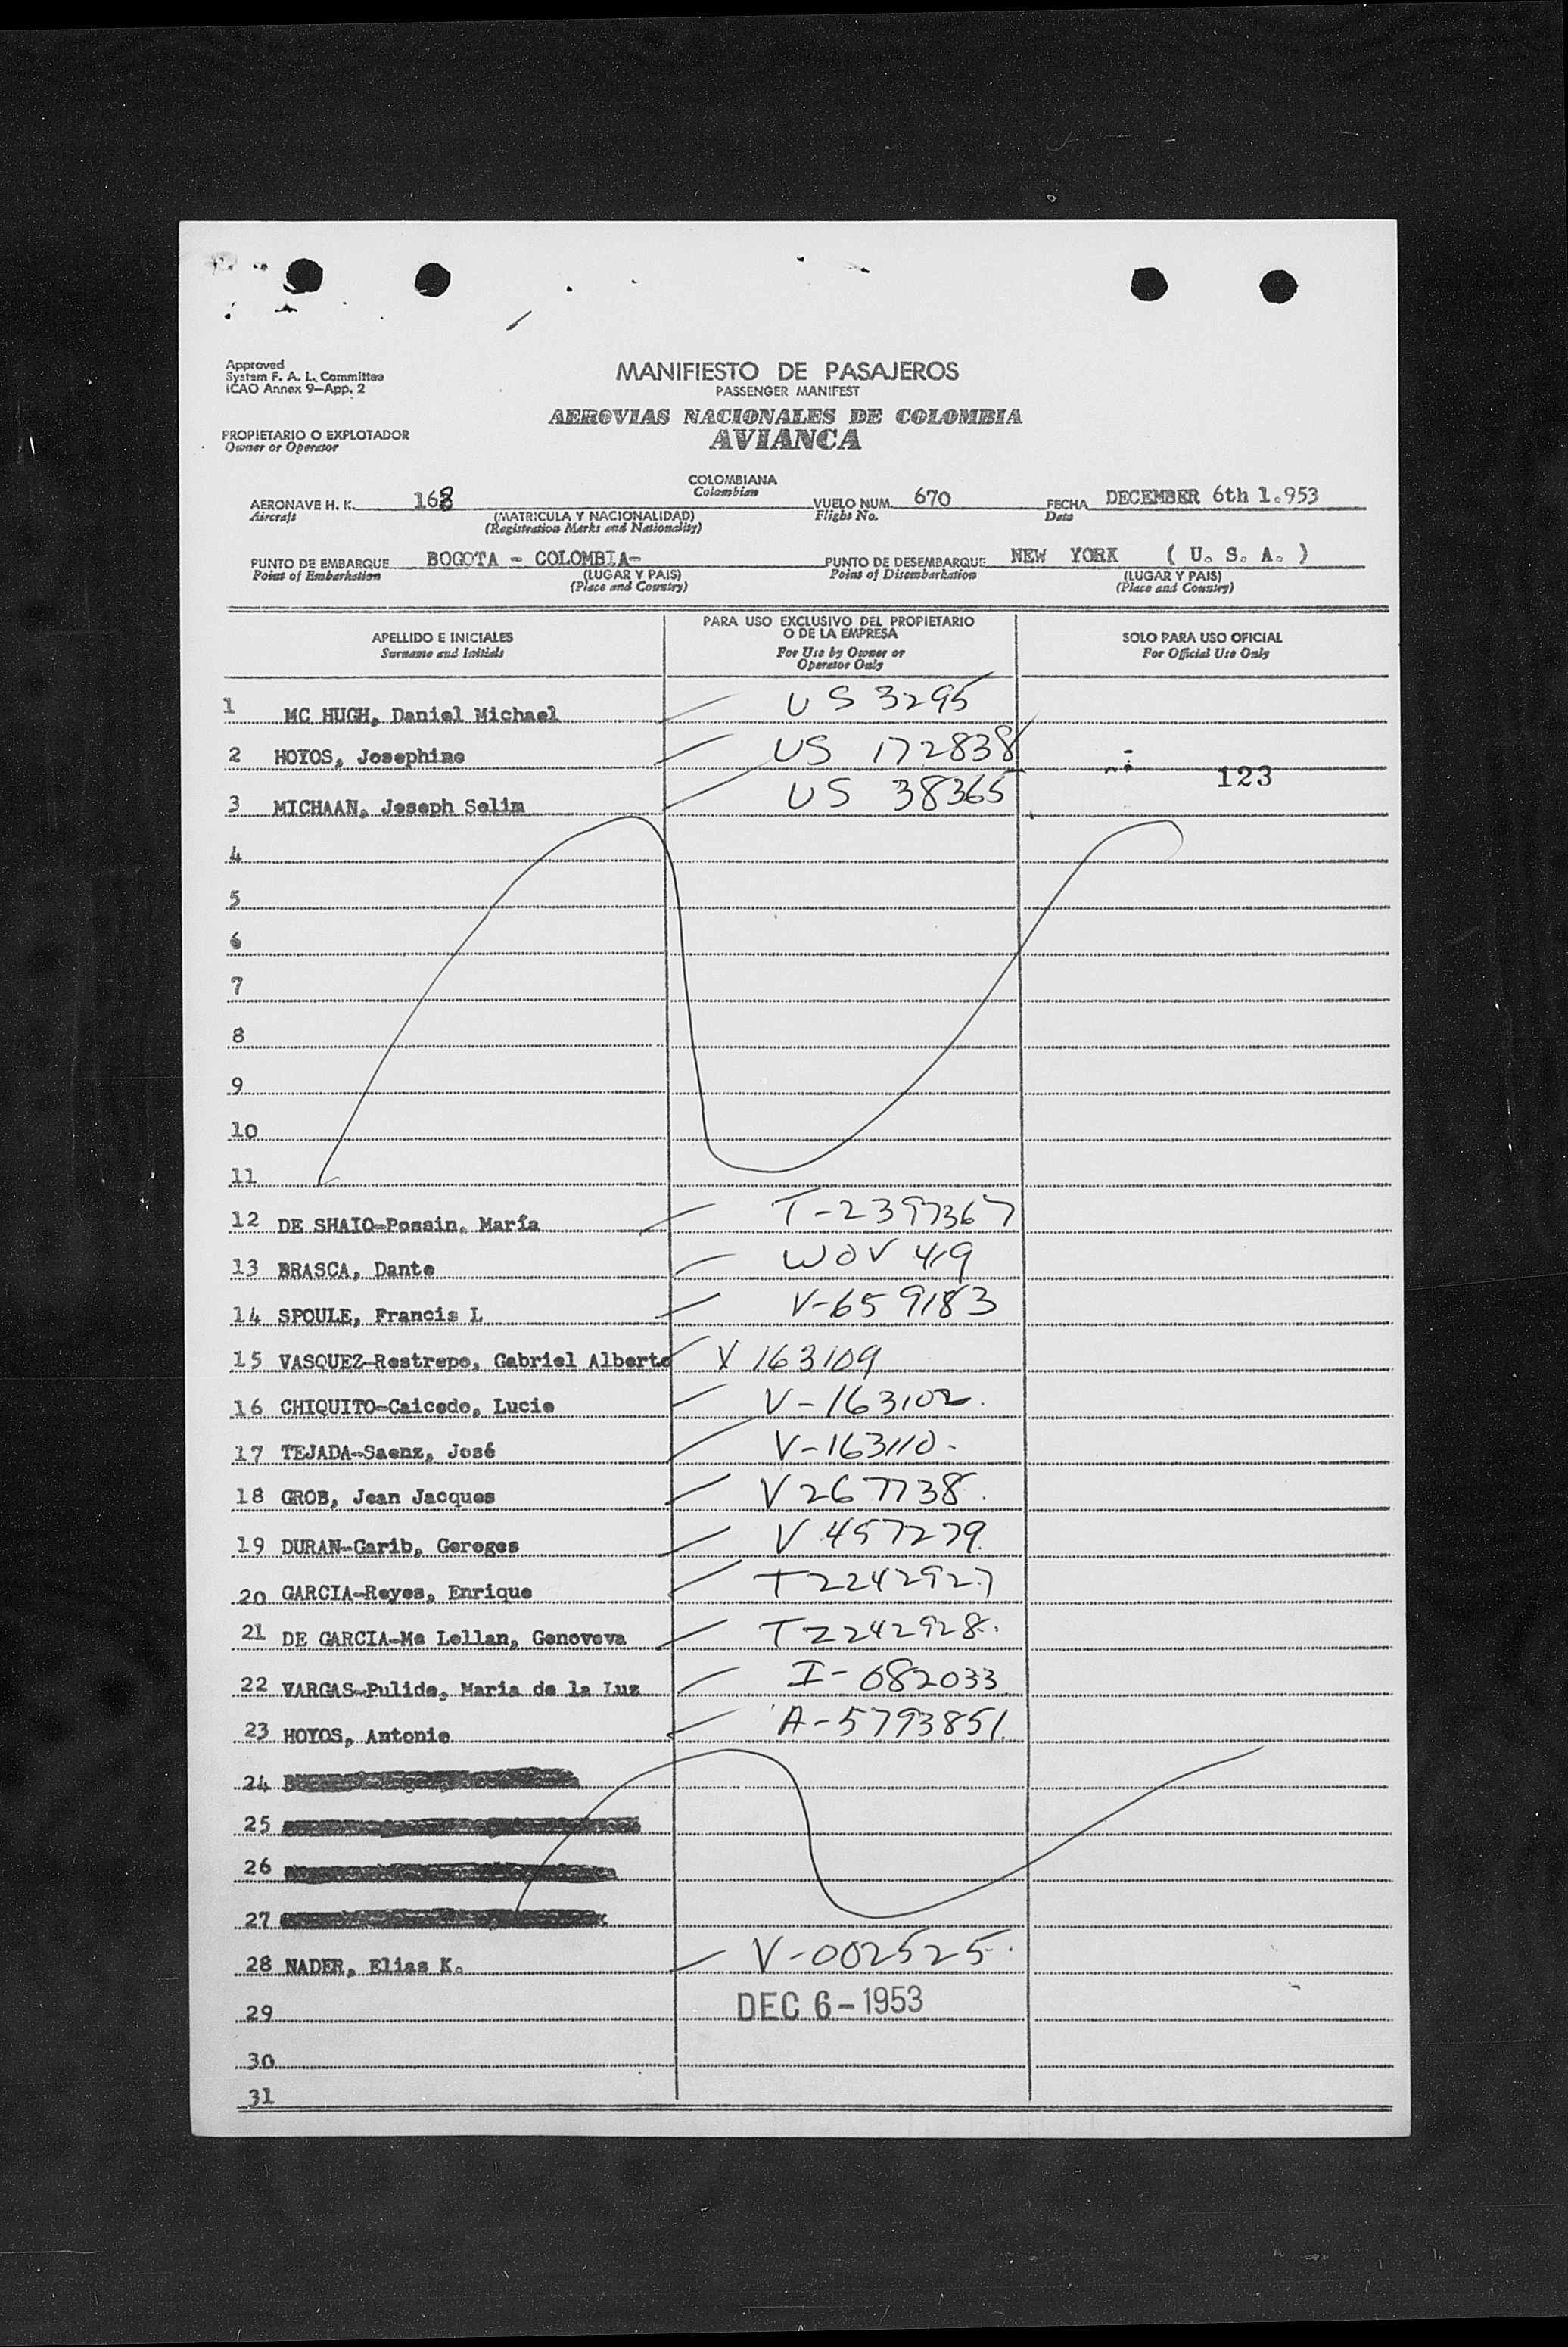 Approved
System F. A. L. Committee
ICAO Annex 9—App. 2
MANIFIESTO DE PASAJEROS
PASSENGER MANIFEST
AEROVIAS NACIONALES DE COLOMBIA
AVIANCA
PROPIETARIO O EXPLOTADOR
Owner or Operator
COLOMBIANA
Colombian
AERONAVE H. K. 168 VUELO NUM. 670 FECHA DECEMBER 6th 1.953
Aircraft (MATRICULA Y NACIONALIDAD) Flight No. Date
(Registration Marks and Nationality)
PUNTO DE EMBARQUE BOGOTA - COLOMBIA- PUNTO DE DESEMBARQUE NEW YORK ( U. S. A. )
Point of Embarkation (LUGAR Y PAIS) Point of Disembarkation (LUGAR Y PAIS)
(Place and Country) (Place and Country)
APELLIDO E INICIALES
Surname and Initials
PARA USO EXCLUSIVO DEL PROPIETARIO
O DE LA EMPRESA
For Use by Owner or
Operator Only
SOLO PARA USO OFICIAL
For Official Use Only
1 MC HUGH, Daniel Michael US 3295
2 HOYOS, Josephine US 172838
123
3 MICHAAN, Joseph Selim US 38365
4
5
6
7
8
9
10
11
12 DE SHAIO-Possin, María T-2397367
13 BRASCA, Dante WOV 419
14 SPOULE, Francis L V-659183
15 VASQUEZ-Restrepo, Gabriel Alberto V 163109
16 CHIQUITO-Caicedo, Lucie V-163102.
17 TEJADA-Saenz, José V-163110.
18 GROB, Jean Jacques V 267738.
19 DURAN-Garib, Goroges V 457279.
20 GARCIA-Reyes, Enrique T2242927
21 DE GARCIA-Mc Lellan, Genoveva T2242928.
22 VARGAS-Pulido, Maria de la Luz I-082033
23 HOYOS, Antonio A-5793851.
24
25
26
27
28 NADER, Elias K. V-002525.
29 DEC 6-1953
30
31